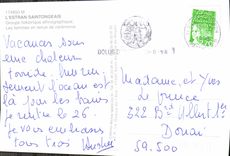 174850 M
L'ESTRAN SAINTONGEAIS
Groupe folklorique ethnographique.
Les femmes en tenue de cérémonie.
Vacances sous
une chaleur
torride. heureu
sement l'océan est
là pour les bains
je rentre le 26.
Je vous embrasse
tous trois
DOLUS
Madame, et Yves
Le
322 Bd Albert 1er
Douai
59.500